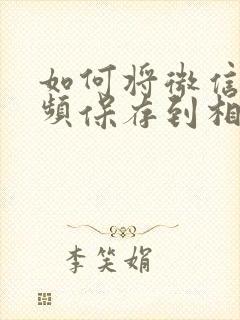 如何将微信
频保存到相
李笑娟